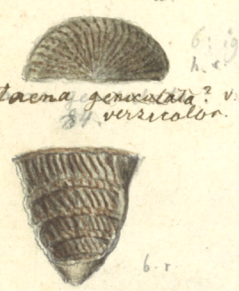 6: ig
h. r.
Taena geniculata? v.
84. versicolor.
6. r